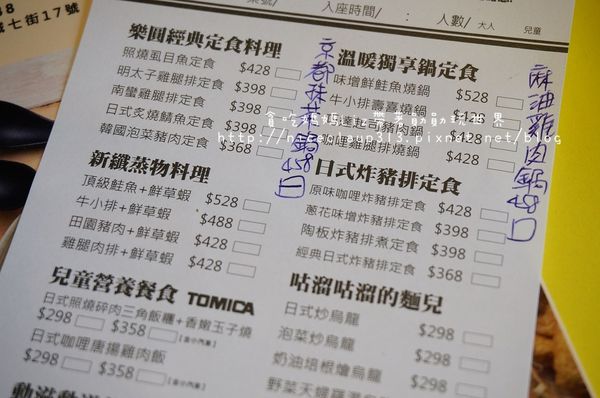 桌號/
入座時間/ : 人數/ 大人 兒童
街17號
樂圓經典定食料理
照燒虱目魚定食 $428
明太子雞腿定食 $398
南蠻雞腿排定食 $398
日式炙燒鯖魚定食 $398
韓國泡菜豬肉定食 $368
新纖蒸物料理
頂級鮭魚+鮮草蝦 $528
牛小排+鮮草蝦 $488
田園豬肉+鮮草蝦 $428
雞腿肉排+鮮草蝦 $428
兒童營養餐食 TOMICA
日式照燒碎肉三角飯糰+香嫩玉子燒
$298 $358 [含小汽車]
日式咖哩唐揚雞肉飯
$298 $358 [含小汽車]
溫暖獨享鍋定食
味增鮮鮭魚燒鍋 $528
牛小排壽喜燒鍋
$428
咖哩雞腿排燒鍋 $428
日式炸豬排定食
原味咖哩炸豬排定食 $428
蔥花味增炸豬排定食 $398
陶板炸豬排煮定食 $398
經典日式炸豬排定食 $368
咕溜咕溜的麵兒
日式炒烏龍 $298
泡菜炒烏龍 $298
奶油培根燴烏龍 $298
京都抹茶鍋458口
麻油雞肉鍋 458口
貪吃媽媽
http://nicolesun313.pixnet.net/blog